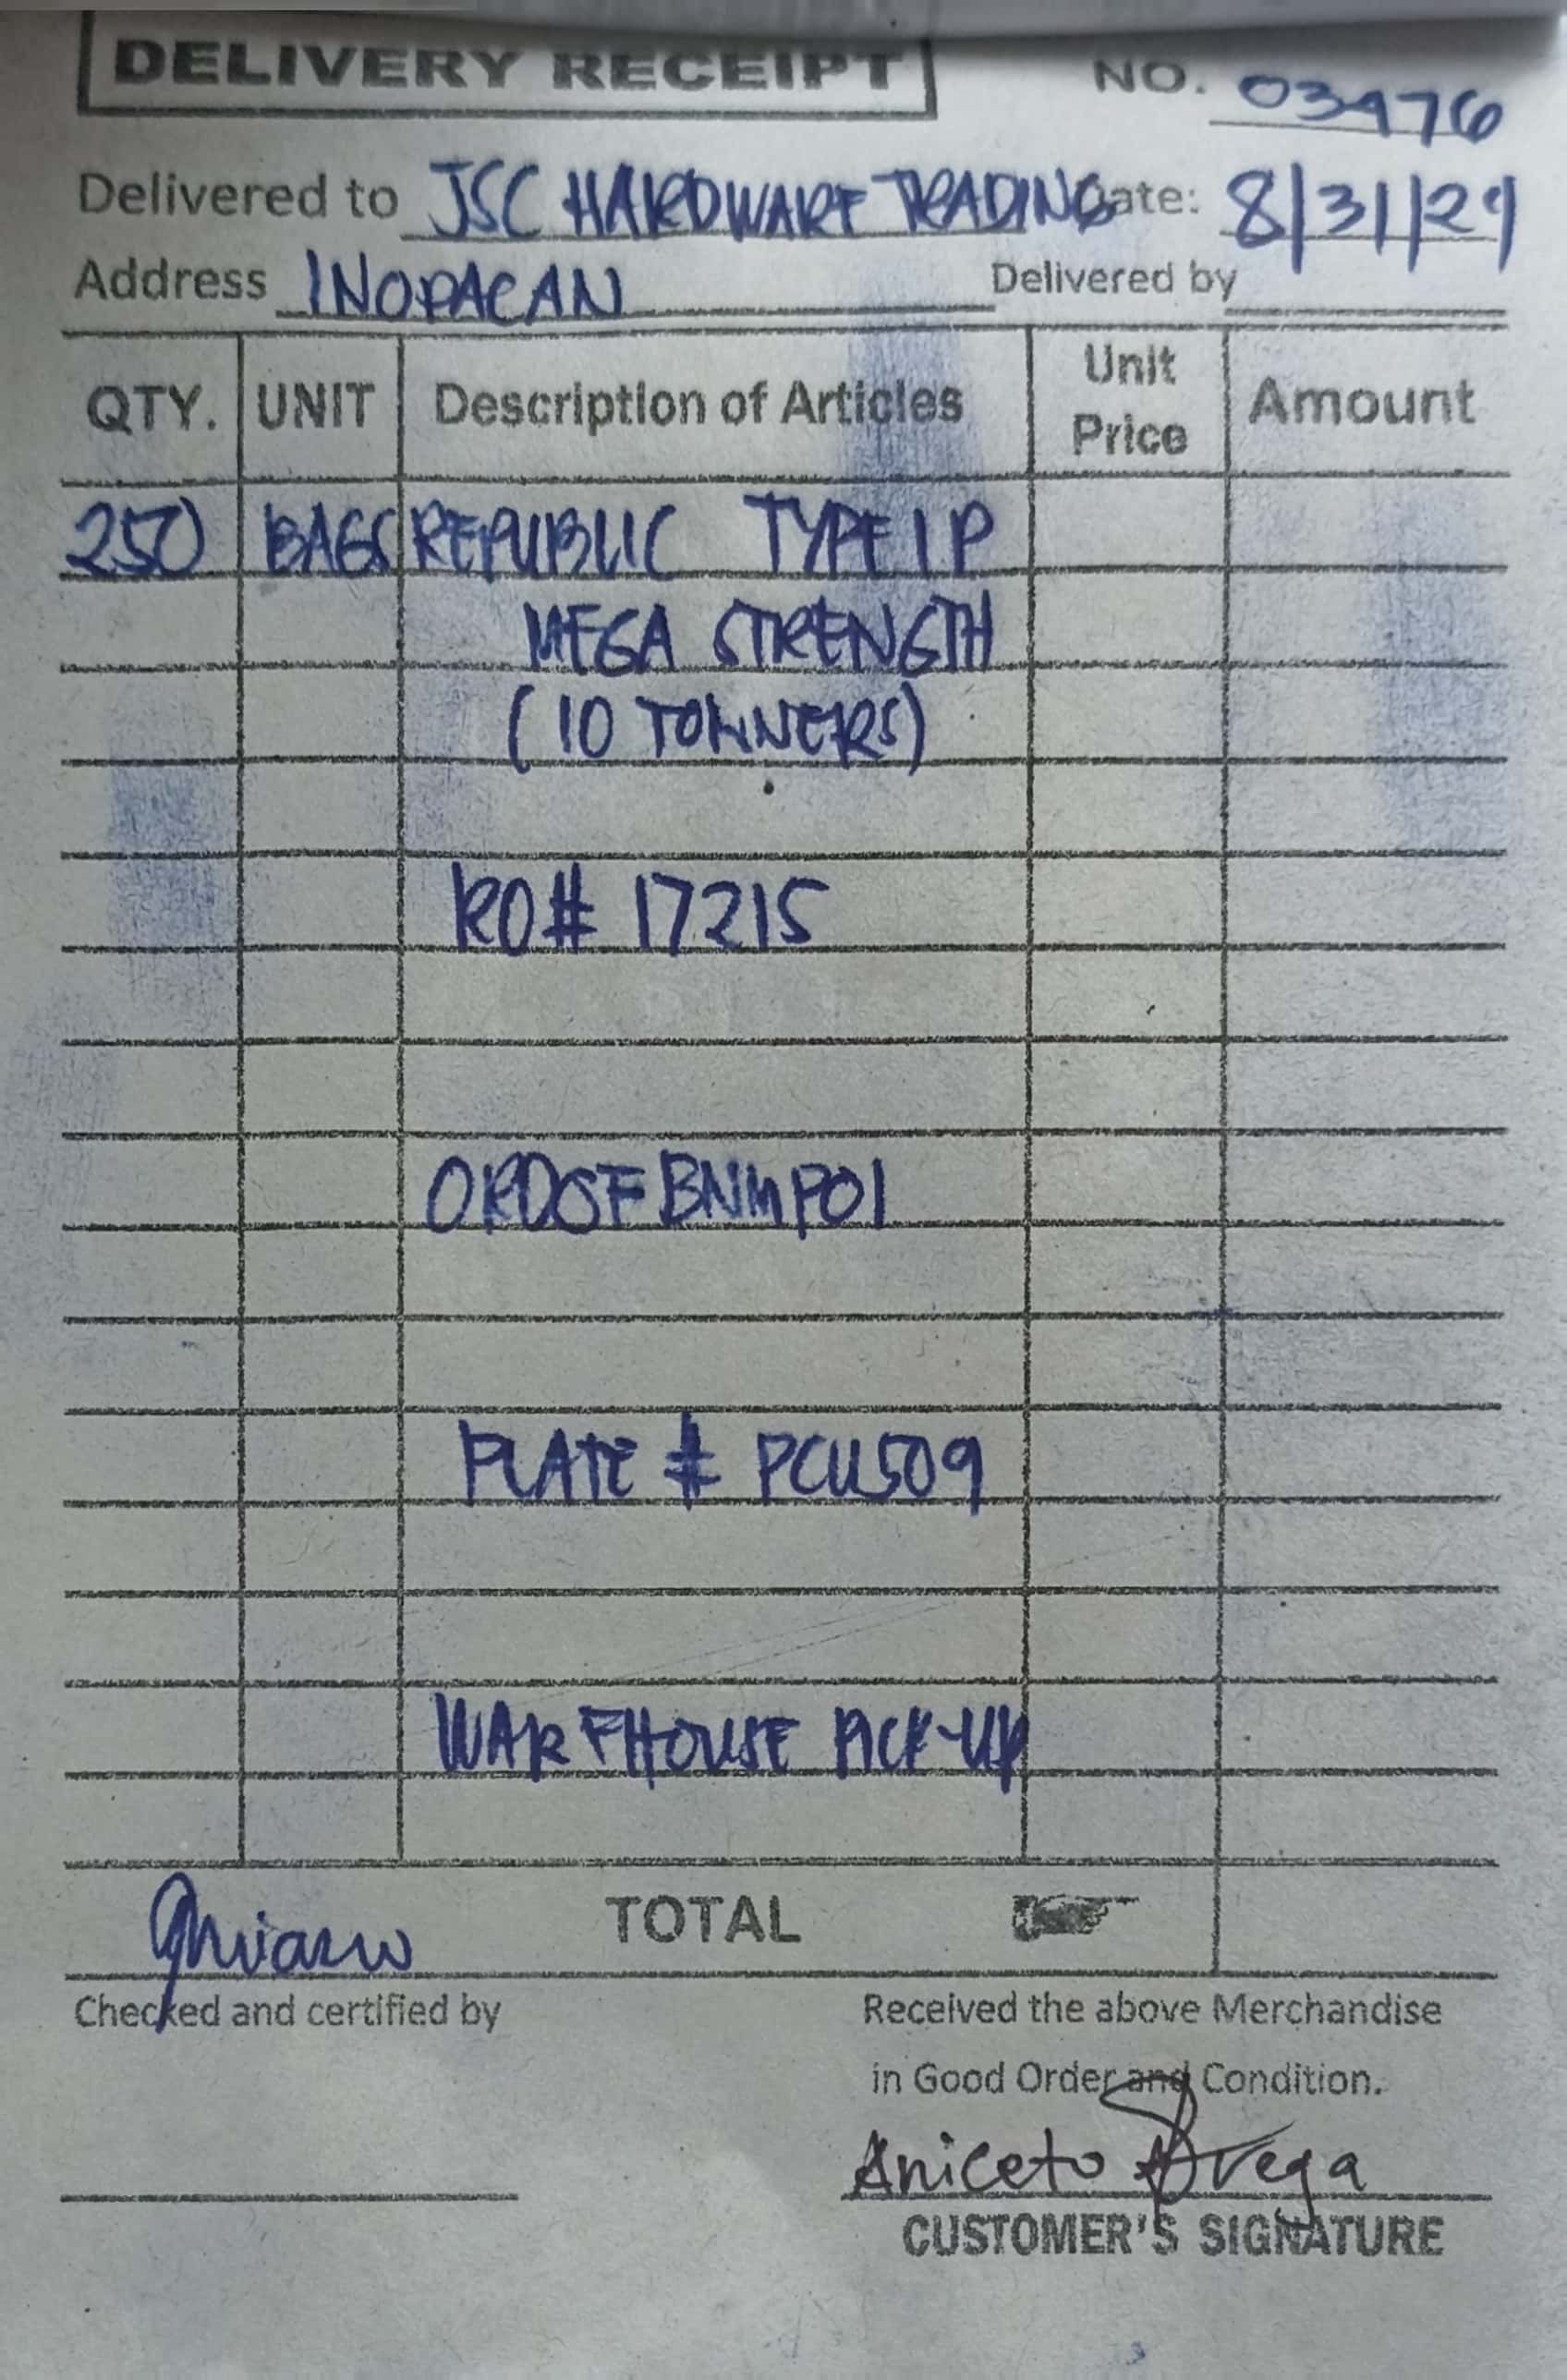 DELIVERY RECEIPT NO. 03976
Delivered to JSC HARDWARE TRADING Date: 8/31/24
Address INOPACAN Delivered by
QTY. UNIT Description of Articles Unit Price Amount
250 BAGS REPUBLIC TYPE 1P
MEGA STRENGTH
(10 TONNERS)
RO# 17215
ORDSFBNMP01
PLATE # PCU509
WAREHOUSE PICK-UP
TOTAL
Checked and certified by Received the above Merchandise
in Good Order and Condition.
Aniceto
CUSTOMER'S SIGNATURE